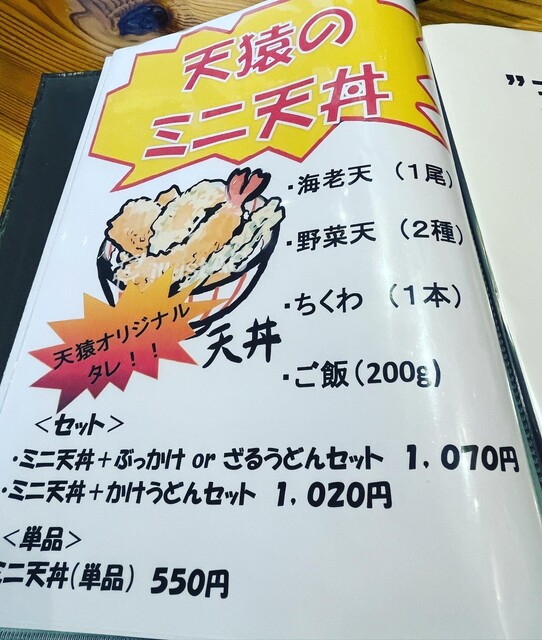 天猿の
ミニ天丼
・海老天 （１尾）
・野菜天 （２種）
・ちくわ （１本）
・ご飯（200g）
天猿オリジナル
タレ！！
天丼
＜セット＞
・ミニ天丼＋ぶっかけ or ざるうどんセット １，０７０円
・ミニ天丼＋かけうどんセット １，０２０円
＜単品＞
ミニ天丼（単品） ５５０円